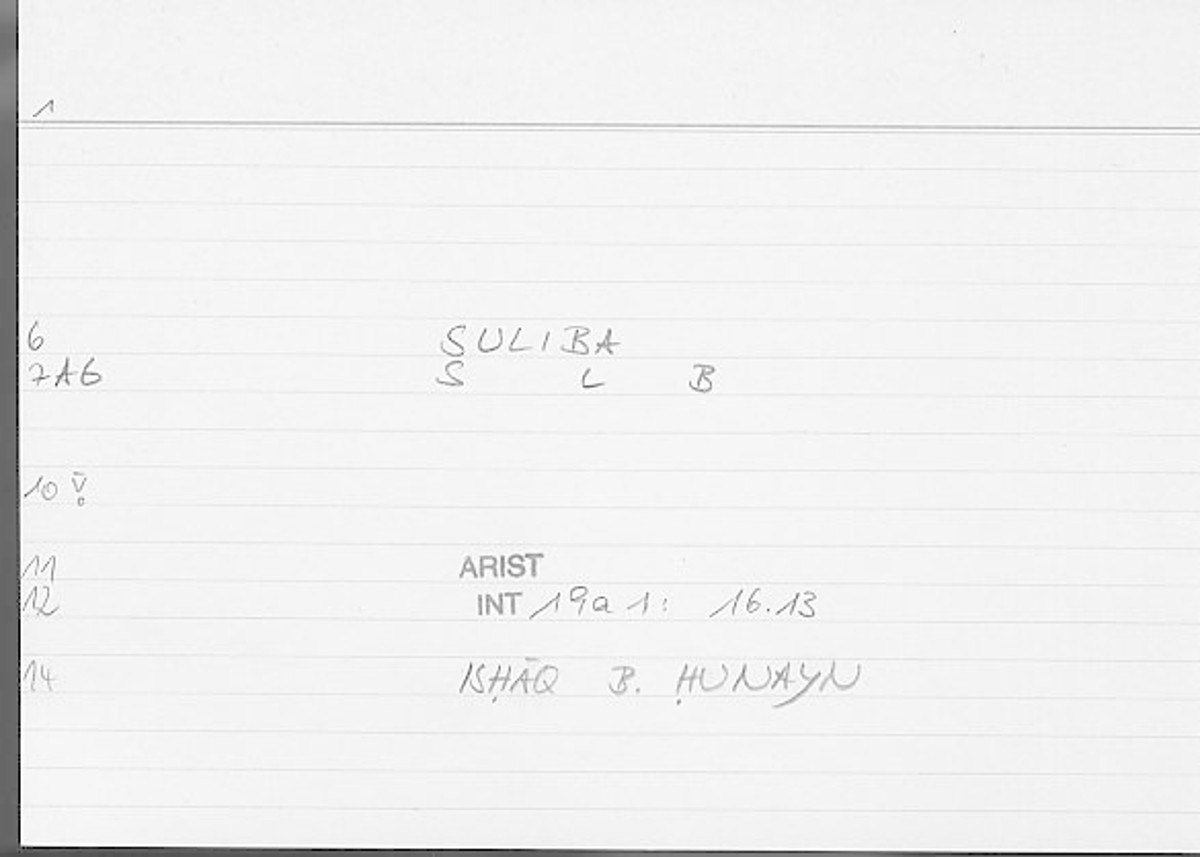 1
6 SULIBA
7AG S L B
10 v̄̊
11 ARIST
12 INT 19a 1: 16.13
14 ISḤĀQ B. ḤUNAYN